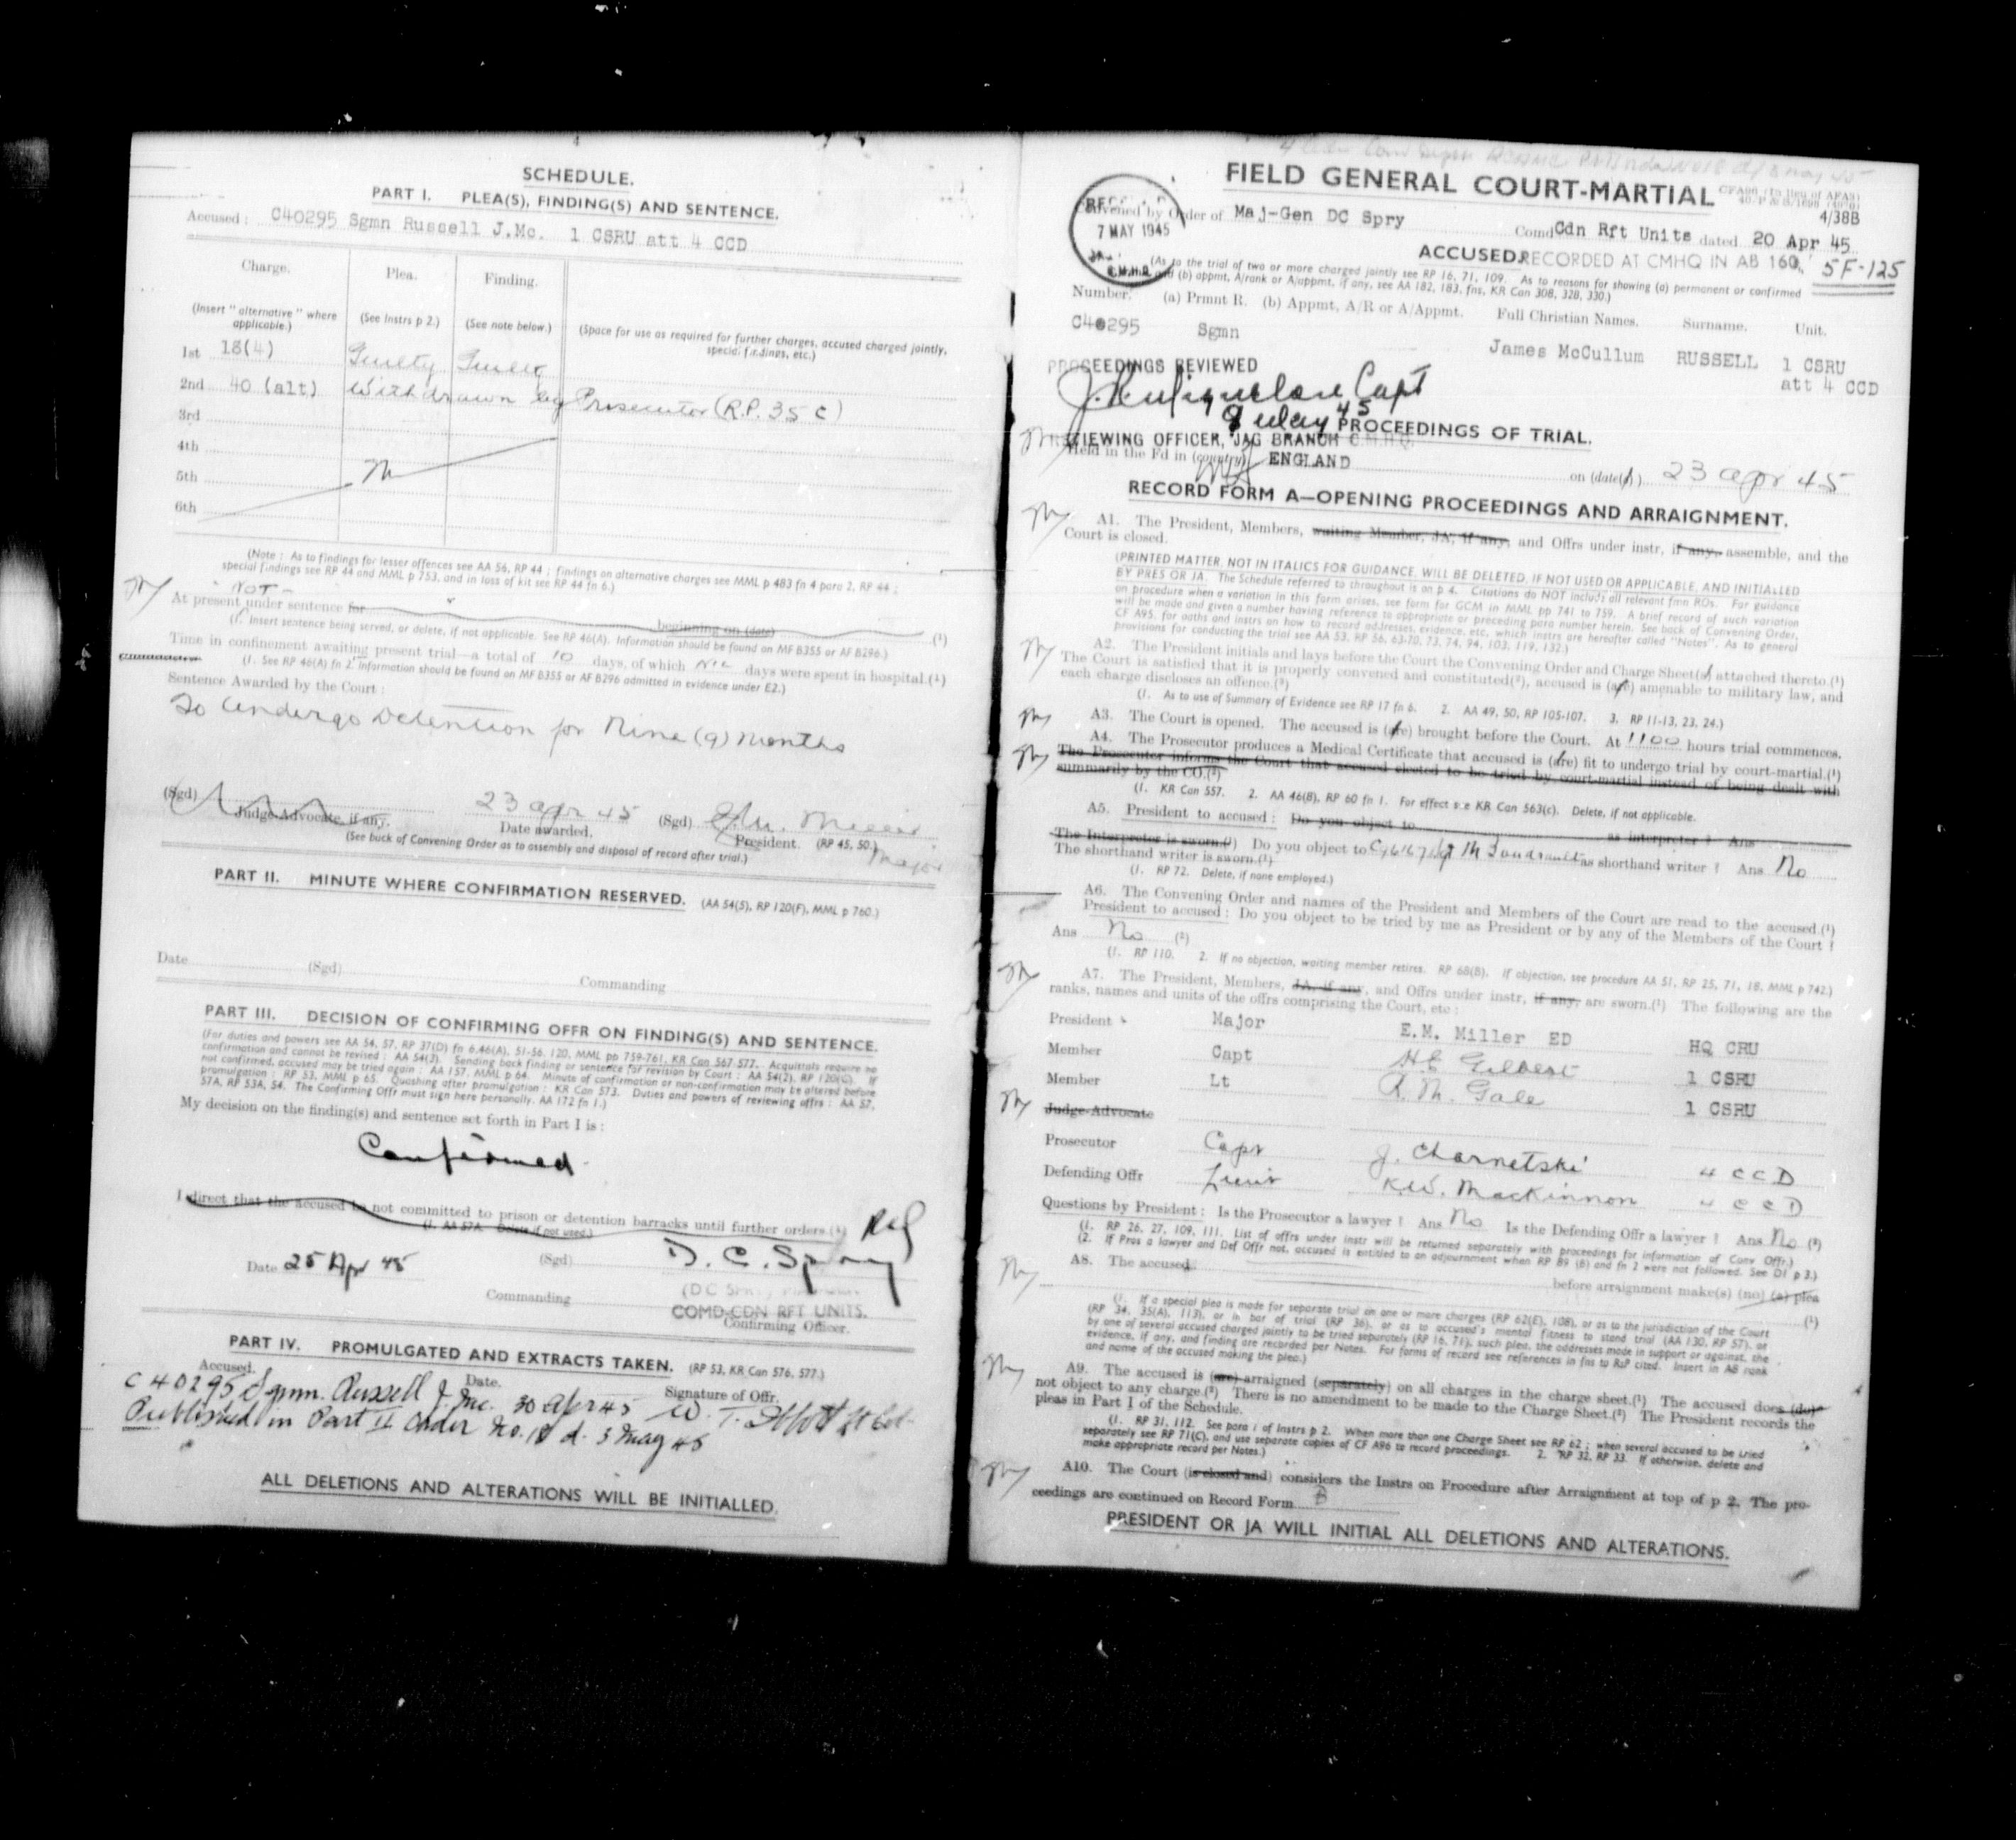 SCHEDULE.
PART I. PLEA(S), FINDING(S) AND SENTENCE.
Accused: C40295 Sgmn Russell J.Mc. 1 CSRU att 4 CCD
Charge. Plea. Finding.
(Insert "alternative" where applicable.) (See Instrs p 2.) (See note below.) (Space for use as required for further charges, accused charged jointly, special findings, etc.)
1st 18(4) Guilty Guilty
2nd 40 (alt) Withdrawn by Prosecutor (R.P. 35 c)
3rd
4th
5th
6th
(Note: As to findings for lesser offences see AA 56, RP 44; findings on alternative charges see MML p 483 fn 4 para 2, RP 44;
special findings see RP 44 and MML p 753, and in loss of kit see RP 44 fn 6.)
NOT
At present under sentence for beginning on (date) (1)
(1. Insert sentence being served, or delete, if not applicable. See RP 46(A). Information should be found on MF B355 or AF B296.)
Time in confinement awaiting present trial—a total of 10 days, of which NIL days were spent in hospital.(1)
(1. See RP 46(A) fn 2. Information should be found on MF B355 or AF B296 admitted in evidence under E2.)
Sentence Awarded by the Court:
To Undergo Detention for Nine (9) Months
(Sgd) 23 Apr 45 (Sgd) E.M. Miller
Judge-Advocate, if any. Date awarded. President. (RP 45, 50.) Major
(See back of Convening Order as to assembly and disposal of record after trial.)
PART II. MINUTE WHERE CONFIRMATION RESERVED. (AA 54(5), RP 120(F), MML p 760.)
Date (Sgd)
Commanding
PART III. DECISION OF CONFIRMING OFFR ON FINDING(S) AND SENTENCE.
(For duties and powers see AA 54, 57, RP 37(D) fn 6,46(A), 51-56, 120, MML pp 759-761, KR Can 567-577. Acquittals require no
confirmation and cannot be revised: AA 54(3). Sending back finding or sentence for revision by Court: AA 54(2), RP 120(C). If
not confirmed, accused may be tried again: AA 157, MML p 64. Minute of confirmation or non-confirmation may be altered before
promulgation: RP 53, MML p 65. Quashing after promulgation: KR Can 573. Duties and powers of reviewing offrs: AA 57,
57A, RP 53A, 54. The Confirming Offr must sign here personally. AA 172 fn 1.)
My decision on the finding(s) and sentence set forth in Part I is:
Confirmed
I direct that the accused be not committed to prison or detention barracks until further orders.(1)
(1. AA 57A. Delete if not used.)
Date 25 Apr 45 (Sgd) D. C. Spry
Commanding COMD CDN RFT UNITS.
Confirming Officer.
PART IV. PROMULGATED AND EXTRACTS TAKEN. (RP 53, KR Can 576, 577.)
Accused. Date. Signature of Offr.
C 40295 Sgmn. Russell J. Mc. 30 Apr 45 W. T.
Published in Part II Order No. 18 d. 3 May 45
ALL DELETIONS AND ALTERATIONS WILL BE INITIALLED.
FIELD GENERAL COURT-MARTIAL
4/38B
Convened by Order of Maj-Gen DC Spry Comd Cdn Rft Units dated 20 Apr 45
7 MAY 1945
C.M.H.Q.
ACCUSED. RECORDED AT CMHQ IN AB 160, 5F-125
(As to the trial of two or more charged jointly see RP 16, 71, 109. As to reasons for showing (a) permanent or confirmed
and (b) appmt, A/rank or A/appmt, if any, see AA 182, 183, fns, KR Can 308, 328, 330.)
Number. (a) Prmnt R. (b) Appmt, A/R or A/Appmt. Full Christian Names. Surname. Unit.
C40295 Sgmn James McCullum RUSSELL 1 CSRU
att 4 CCD
PROCEEDINGS REVIEWED
Capt
9 May 45
PROCEEDINGS OF TRIAL.
REVIEWING OFFICER, JAG BRANCH C.M.H.Q.
Held in the Fd in (country) ENGLAND on (date) 23 Apr 45
RECORD FORM A—OPENING PROCEEDINGS AND ARRAIGNMENT.
A1. The President, Members, waiting Member, JA, if any, and Offrs under instr, if any, assemble, and the
Court is closed.
(PRINTED MATTER, NOT IN ITALICS FOR GUIDANCE, WILL BE DELETED, IF NOT USED OR APPLICABLE, AND INITIALLED
BY PRES OR JA. The Schedule referred to throughout is on p 4. Citations do NOT include all relevant fms ROs. For guidance
on procedure when a variation in this form arises, see form for GCM in MML pp 741 to 759. A brief record of such variation
will be made and given a number having reference to appropriate or preceding para number herein. See back of Convening Order,
CF A95, for oaths and instrs on how to record addresses, evidence, etc, which instrs are hereafter called "Notes". As to general
provisions for conducting the trial see AA 53, RP 56, 63-70, 73, 74, 94, 103, 119, 132.)
A2. The President initials and lays before the Court the Convening Order and Charge Sheet(s) attached thereto.(1)
The Court is satisfied that it is properly convened and constituted(2), accused is (are) amenable to military law, and
each charge discloses an offence.(3)
(1. As to use of Summary of Evidence see RP 17 fn 6. 2. AA 49, 50, RP 105-107. 3. RP 11-13, 23, 24.)
A3. The Court is opened. The accused is (are) brought before the Court. At 1100 hours trial commences.
A4. The Prosecutor produces a Medical Certificate that accused is (are) fit to undergo trial by court-martial.(1)
The Prosecutor informs the Court that accused elected to be tried by court-martial instead of being dealt with
summarily by the CO.(2)
(1. KR Can 557. 2. AA 46(8), RP 60 fn 1. For effect see KR Can 563(c). Delete, if not applicable.
A5. President to accused: Do you object to as interpreter? Ans
The Interpreter is sworn.(1) Do you object to as shorthand writer? Ans No
The shorthand writer is sworn.(1)
(1. RP 72. Delete, if none employed.)
A6. The Convening Order and names of the President and Members of the Court are read to the accused.(1)
President to accused: Do you object to be tried by me as President or by any of the Members of the Court?
Ans No (2)
(1. RP 110. 2. If no objection, waiting member retires. RP 68(B). If objection, see procedure AA 51, RP 25, 71, 18, MML p 742.)
A7. The President, Members, JA, if any, and Offrs under instr, if any, are sworn.(1) The following are the
ranks, names and units of the offrs comprising the Court, etc:
President Major E.M. Miller ED HQ CRU
Member Capt H.E Gilbert 1 CSRU
Member Lt A. M. Gale 1 CSRU
Judge-Advocate
Prosecutor Capt J. Charnetski 4 CCD
Defending Offr Lieut K.W. Mackinnon 4 CCD
Questions by President: Is the Prosecutor a lawyer? Ans No Is the Defending Offr a lawyer? Ans No (2)
(1. RP 26, 27, 109, 111. List of offrs under instr will be returned separately with proceedings for information of Conv Offr.)
(2. If Pros a lawyer and Def Offr not, accused is entitled to an adjournment when RP 89 (B) and fn 2 were not followed. See D1 p 3.)
A8. The accused
before arraignment make(s) (no) (a) plea
(1)
(1. If a special plea is made for separate trial on one or more charges (RP 62(E), 108), or as to the jurisdiction of the Court
(RP 34, 35(A), 113), or in bar of trial (RP 36), or as to accused's mental fitness to stand trial (AA 130, RP 57), or
by one of several accused charged jointly to be tried separately (RP 16, 71), such plea, the addresses made in support or against, the
evidence, if any, and finding are recorded per Notes. For forms of record see references in fns to RsP cited. Insert in A8 rank
and name of the accused making the plea.)
A9. The accused is (are) arraigned (separately) on all charges in the charge sheet.(1) The accused does (do)
not object to any charge.(2) There is no amendment to be made to the Charge Sheet.(2) The President records the
pleas in Part I of the Schedule.
(1. RP 31, 112. See para 1 of Instrs p 2. When more than one Charge Sheet see RP 62; when several accused to be tried
separately see RP 71(C), and use separate copies of CF A96 to record proceedings. 2. RP 32, RP 33. If otherwise, delete and
make appropriate record per Notes.)
A10. The Court (is closed and) considers the Instrs on Procedure after Arraignment at top of p 2. The pro-
ceedings are continued on Record Form B
PRESIDENT OR JA WILL INITIAL ALL DELETIONS AND ALTERATIONS.